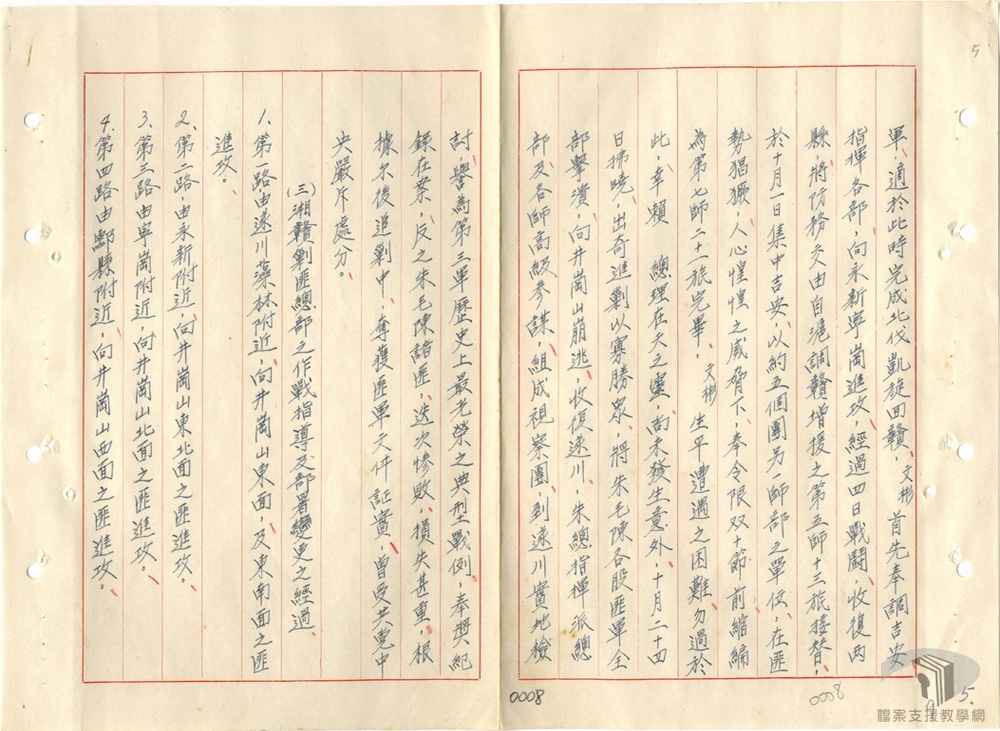 5
軍，適於此時完成北伐凱旋回贛，文彬首先奉調吉安
指揮各部，向永新寧崗進攻，經過四日戰鬪，收復兩
縣，將防務交由自滬調贛增援之第五師十三旅接替，
於十月一日集中吉安，以約五個團另一師部之單位，在匪
勢猖獗，人心惶惶之威脅下，奉令限双十節前縮編
為第七師二十一旅完畢，文彬生平遭遇之困難，勿過於
此，幸賴　總理在天之靈，尚未發生意外，十月二十四
日拂曉，出奇進剿以寡勝眾，將朱毛陳各股匪軍全
部擊潰，向井崗山崩逃，收復遂川，朱總指揮派總
部及各師高級參謀，組成視察團，到遂川實地檢
討，譽為第三軍歷史上最光榮之典型戰例，奉獎紀
錄在案，反之朱毛陳諸匪，迭次慘敗，損失甚重，根
據尔後追剿中，奪獲匪軍文件証實，曾受共党中
央嚴斥處分。
(三)湘贛剿匪總部之作戰指導及部署變更之經過
1、第一路由遂川藻林附近，向井崗山東面，及東南面之匪
進攻。
2、第二路，由永新附近，向井崗山東北面之匪進攻。
3、第三路由寧崗附近，向井崗山北面之匪進攻。
4、第四路由酃縣附近，向井崗山西面之匪進攻。
0008
0008
5.
檔案支援教學網